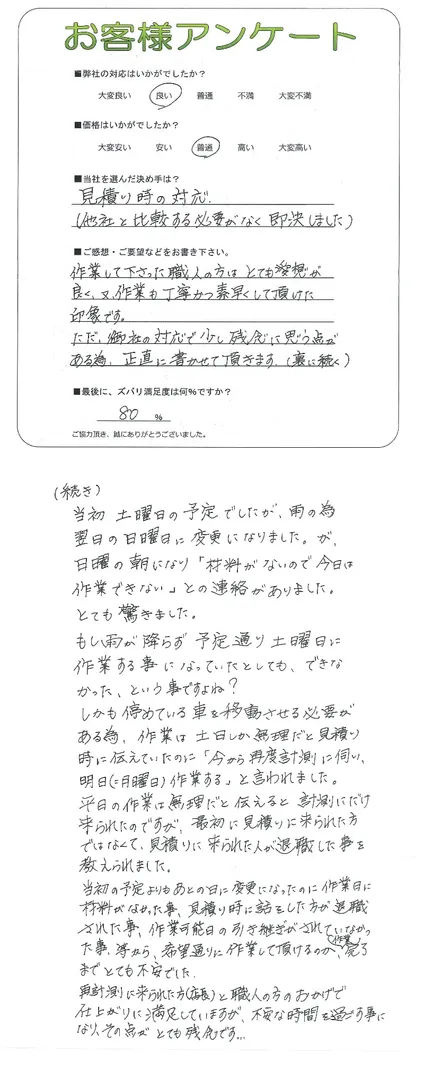 お客様アンケート
■弊社の対応はいかがでしたか？
大変良い　良い　普通　不満　大変不満
■価格はいかがでしたか？
大変安い　安い　普通　高い　大変高い
■当社を選んだ決め手は？
見積り時の対応.
(他社と比較する必要がなく即決しました)
■ご感想・ご要望などをお書き下さい。
作業して下さった職人の方はとても愛想が
良く、又、作業も丁寧かつ素早くして頂けた
印象です。
ただ、御社の対応で少し残念に思う点が
ある為、正直に書かせて頂きます。(裏に続く)
■最後に、ズバリ満足度は何％ですか？
80 ％
ご協力頂き、誠にありがとうございました。
(続き)
当初 土曜日の予定でしたが、雨の為
翌日の日曜日に変更になりました。が、
日曜の朝になり「材料がないので今日は
作業できない」との連絡がありました。
とても驚きました。
もし雨が降らず 予定通り土曜日に
作業する事になっていたとしても、できな
かった、という事ですよね？
しかも停めている車を移動させる必要が
ある為、作業は土日しか無理だと見積り
時に伝えていたのに「今から再度計測に伺い、
明日(に月曜日)作業する」と言われました。
平日の作業は無理だと伝えると 計測にだけ
来られたのですが、最初に見積りに来られた方
ではなくて、見積りに来られた人が退職した事を
教えられました。
当初の予定よりもあとの日に変更になったのに作業日に
材料がなかった事、見積り時に話をした方が退職
された事、作業可能日の引き継ぎがされていなかっ
た事、等から、希望通りに作業して頂けるのか、作業完了
までとても不安でした.
再計測に来られた方(店長)と職人の方のおかげで
仕上がりに満足していますが、不安な時間を過ごす事に
なり、その点がとても残念です…